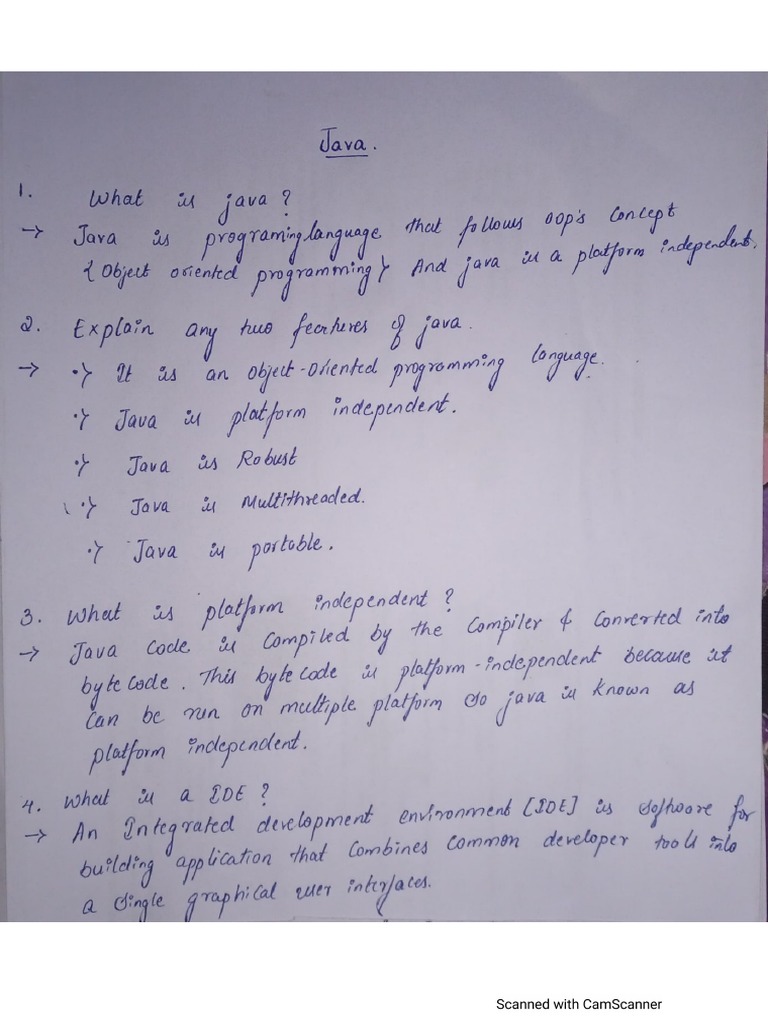 Java.
1. What is java?
→ Java is programing language that follows oop's concept
{Object oriented programming} And java is a platform independent.
2. Explain any two feartures of java.
→ •} It is an object-oriented programming language.
•} Java is platform independent.
•} Java is Robust
•} Java is Multithreaded.
•} Java is portable.
3. What is platform independent?
→ Java code is compiled by the compiler & converted into
byte code. This byte code is platform-independent because it
can be run on multiple platform so java is known as
platform independent.
4. What is a IDE?
→ An Integrated development environment [IDE] is software for
building application that combines common developer tools into
a single graphical user interfaces.
Scanned with CamScanner